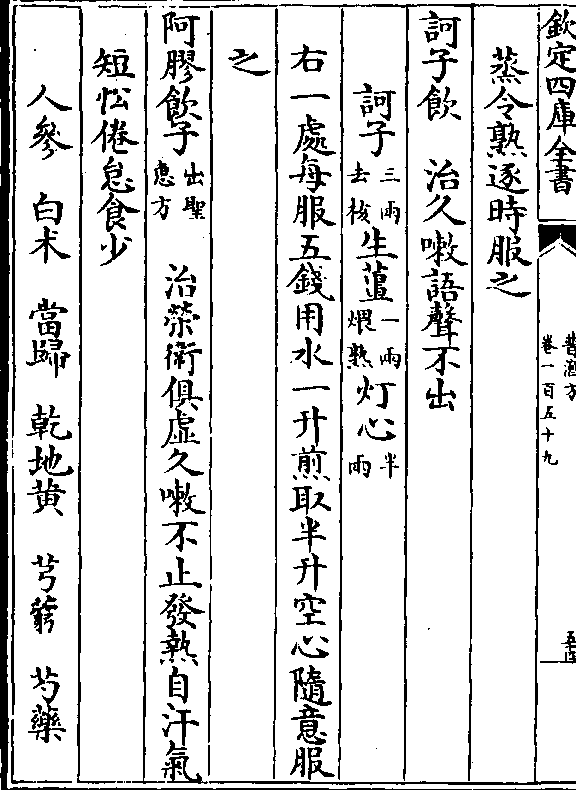 欽定四庫全書
普濟方
卷一百五十九
蒸令熟逐時服之
訶子飲　治久嗽語聲不出
訶子三兩去核生薑一兩煨熟灯心半兩
右一處每服五錢用水一升煎取半升空心隨意服
之
阿膠飲子出聖惠方　治榮衛俱虛久嗽不止發熱自汗氣
短忪倦怠食少
人參　白朮　當歸　乾地黄　芎藭　芍藥